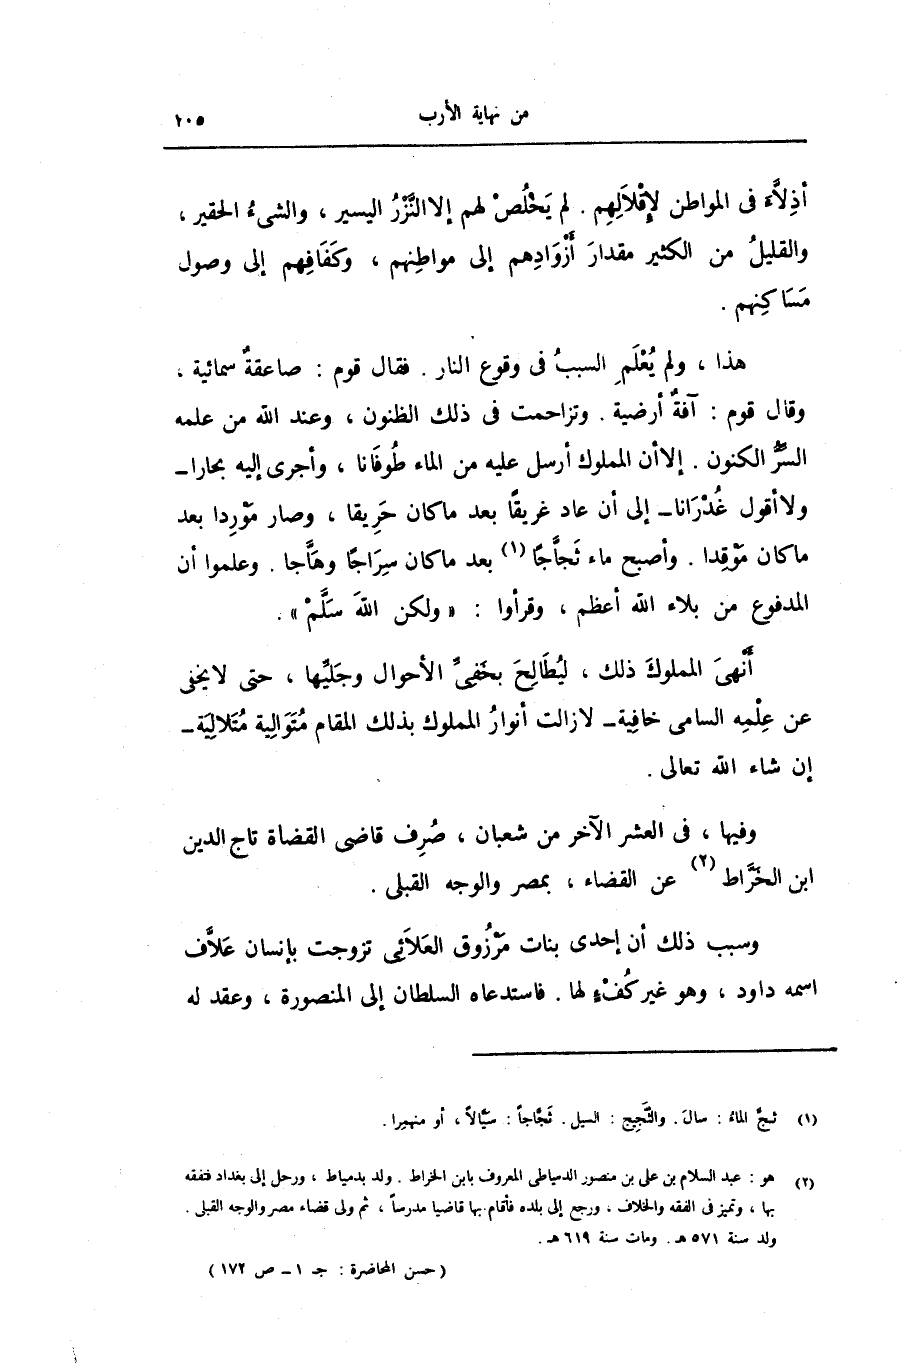 من نهاية الأرب ١٠٥
أذِلَّاءَ فى المواطن لإِقْلَالِهِم . لم يَخْلُصْ لهم إلا النَّزْرُ اليسير ، والشىءُ الحقير ،
والقليلُ من الكثير مقدارَ أَزْوَادِهم إلى مواطِنهم ، وكَفَافِهم إلى وصول
مَسَاكِنهم .
هذا ، ولم يُعْلَمِ السببُ فى وقوع النار . فقال قوم : صاعقةٌ سمائية ،
وقال قوم : آفةٌ أرضية . وتزاحمت فى ذلك الظنون ، وعند الله من علمه
السرُّ المكنون . إلا أن المملوك أرسل عليه من الماء طُوفَانا ، وأجرى إليه بحارا ــ
ولا أقول غُدْرَانا ــ إلى أن عاد غريقًا بعد ماكان حَرِيقا ، وصار مَوْرِدا بعد
ماكان مَوْقِدا . وأصبح ماء ثَجَّاجًا (١) بعد ماكان سِرَاجًا وهَّاجا . وعلموا أن
المدفوع من بلاء الله أعظم ، وقرأوا : « ولكن اللهَ سَلَّمْ » .
أَنْهىَ المملوكَ ذلك ، ليُطَالِعَ بخَفِىِّ الأحوال وجَلَيِّها ، حتى لا يخفى
عن عِلْمِه السامى خافِية ــ لازالت أنوارُ المملوك بذلك المقام مُتَوَالِية مُتَلالِيَة ــ
إن شاء الله تعالى .
وفيها ، فى العشر الآخر من شعبان ، صُرِف قاضى القضاة تاج الدين
ابن الخَرَّاط (٢) عن القضاء ، بمصر والوجه القبلى .
وسبب ذلك أن إحدى بنات مَرْزُوق العَلاَئِى تزوجت بإنسان عَلاَّف
اسمه داود ، وهو غير كُفْءٍ لها . فاستدعاه السلطان إلى المنصورة ، وعقد له
(١) ثجَّ الماءُ : سالَ . والثَّجِيج : السيل . ثَجَّاجاً : سَيَّالاً ، أو منهمِرا .
(٢) هو : عبد السلام بن على بن منصور الدمياطى المعروف بابن الخراط . ولد بدمياط ، ورحل إلى بغداد فتفقه
بها ، وتميز فى الفقه والخلاف ، ورجع إلى بلده فأقام بها قاضيا مدرساً ، ثم ولى قضاء مصر والوجه القبلى .
ولد سنة ٥٧١ هـ . ومات سنة ٦١٩ هـ .
( حسن المحاضرة : جـ ١ ــ ص ١٧٢ )